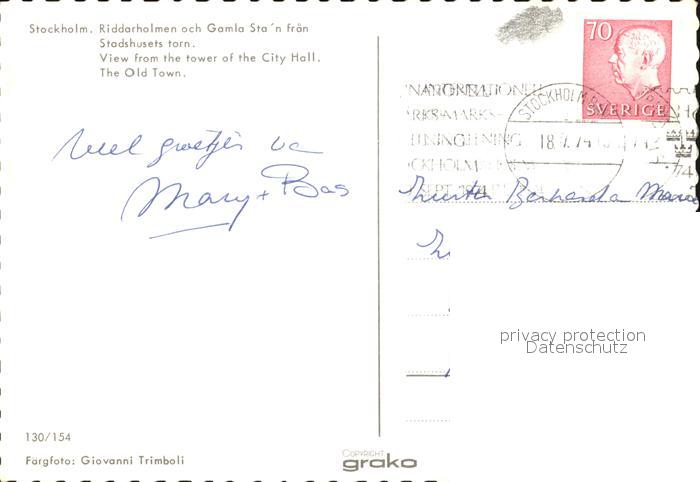 Stockholm. Riddarholmen och Gamla Sta´n från
Stadshusets torn.
View from the tower of the City Hall.
The Old Town.
70
SVERIGE
STOCKHOLM
18.7.74
Veel groetjes va
Mary + Bas
Zuster Bernarda Maria
privacy protection
Datenschutz
130/154
Färgfoto: Giovanni Trimboli
COPYRIGHT
grako